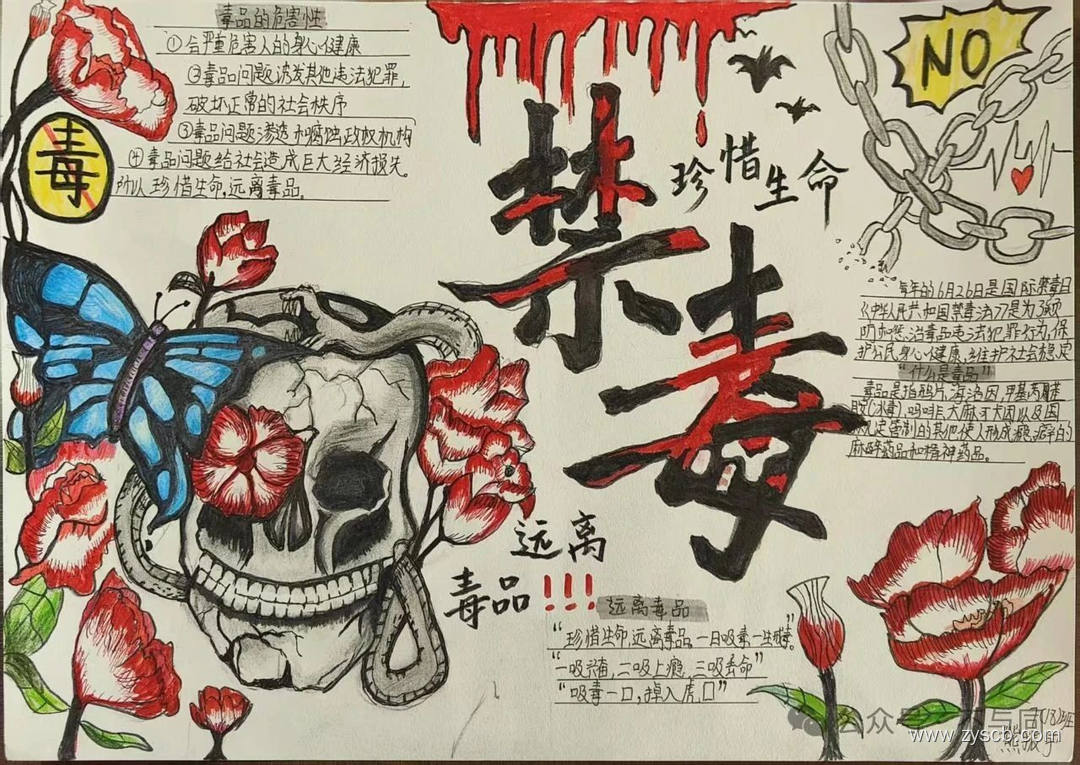 毒品的危害性
①会严重危害人的身心健康
②毒品问题诱发其他违法犯罪,
破坏正常的社会秩序
③毒品问题渗透和腐蚀政权机构
④毒品问题给社会造成巨大经济损失。
所以珍惜生命,远离毒品。
毒
禁毒
珍惜生命
NO
每年的6月26日是国际禁毒日
《中华人民共和国禁毒法》是为了预
防和惩治毒品违法犯罪行为,保
护公民身心健康,维护社会稳定
"什么是毒品"
毒品是指鸦片,海洛因,甲基苯丙胺
(冰毒),吗啡,大麻,可卡因以及国
规定管制的其他使人形成瘾癖的
麻醉药品和精神药品。
远离
毒品!!!
远离毒品
"珍惜生命,远离毒品,一日吸毒一生戒毒"。
"一吸 二吸上瘾,三吸丢命"
"吸毒一口,掉入虎口"
公众号 不与同
7(18)班
熊
www.zyscb.com